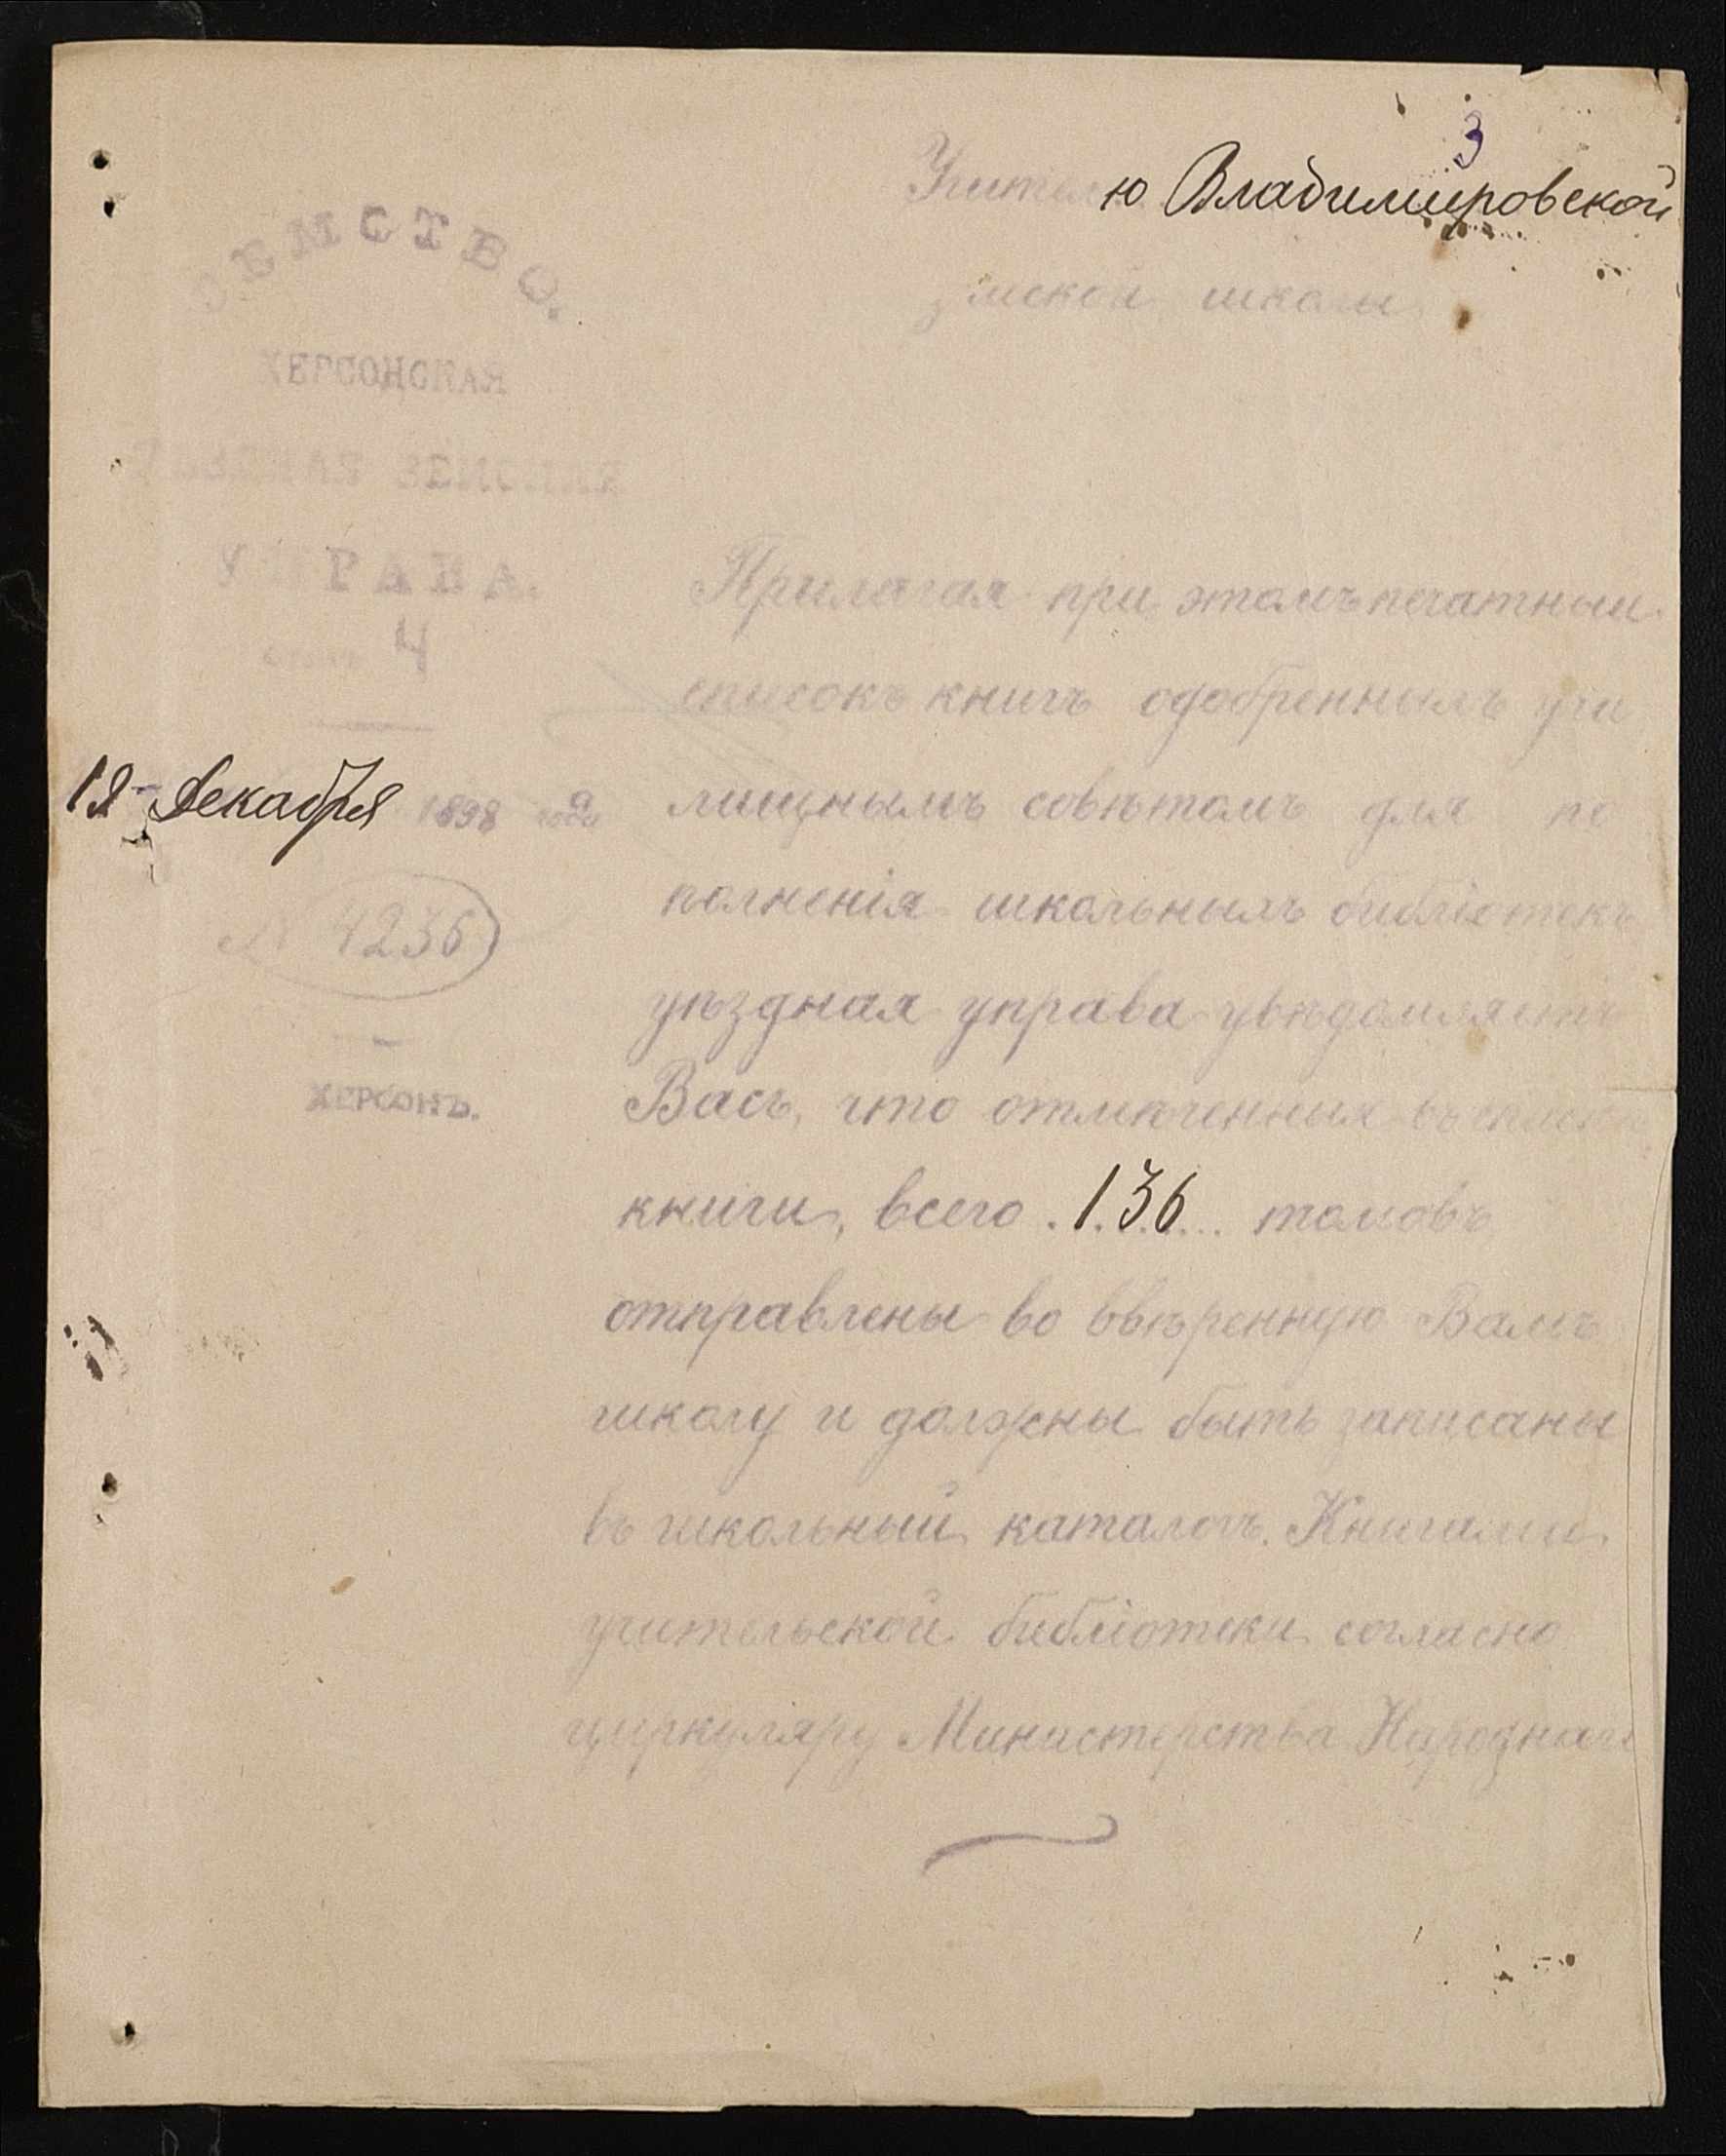 3
Учителю Владимировской
земской школы
ЗЕМСТВО.
ХЕРСОНСКАЯ
УѢЗДНАЯ ЗЕМСКАЯ
УПРАВА.
4
12 Декабря 1898 года
№ 4236
ХЕРСОНЪ.
Прилагая при этомъ печатный
списокъ книгъ одобренныхъ учи
лищнымъ совѣтомъ для по
полненія школьныхъ библіотекъ
уѣздная управа увѣдомляетъ
Васъ, что отмѣченныя въ спискѣ
книги, всего 136 томовъ
отправлены во ввѣренную Вамъ
школу и должны быть записаны
въ школьный каталогъ. Книгами
учительской библіотеки согласно
циркуляру Министерства Народнаго